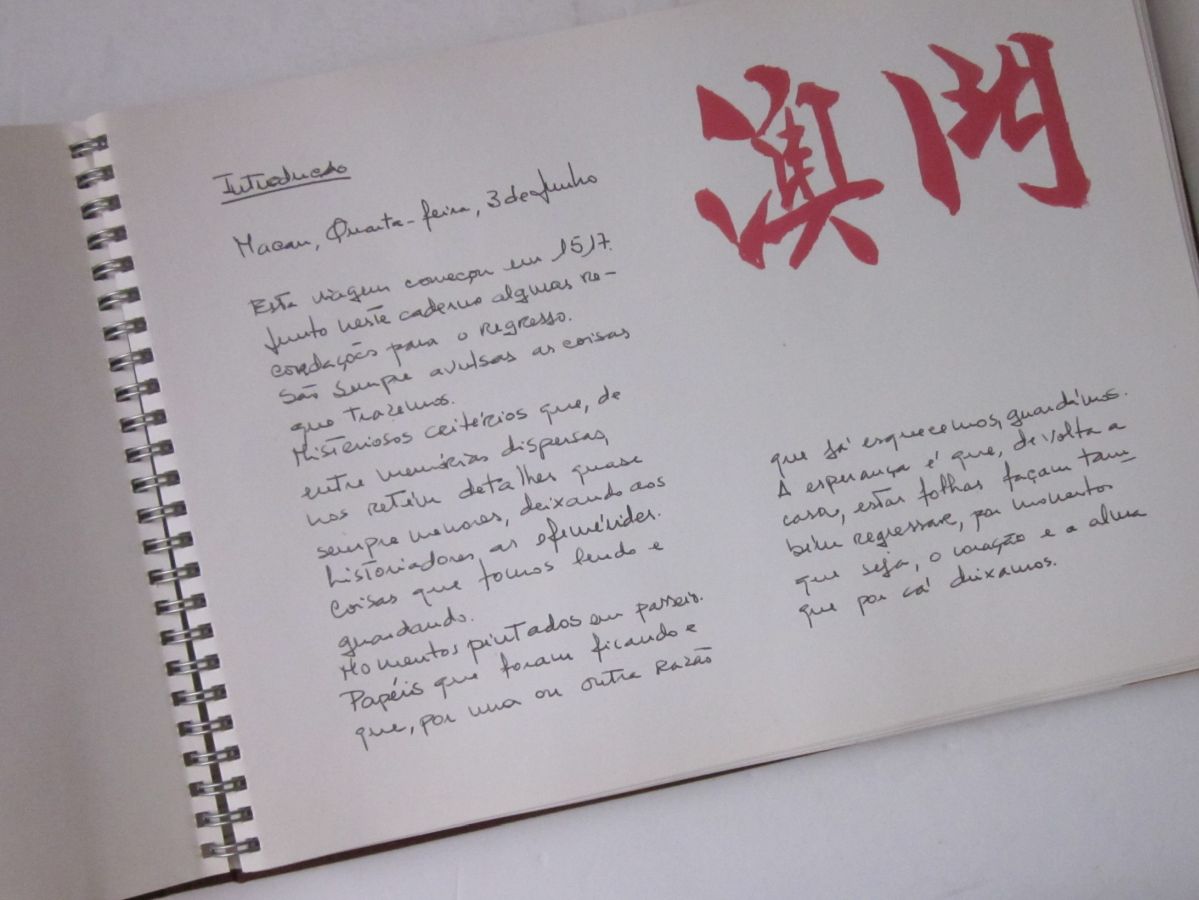 澳門
Introducão
Macau, Quarta-feira, 3 de Junho
Esta viagem começou em 1517.
Junto neste caderno algumas re-
cordações para o regresso.
São sempre avulsas as coisas
que trazemos.
Misteriosos critérios que, de
entre memórias dispersas,
nos retêm detalhes quase
sempre menores, deixando aos
historiadores as efemérides.
Coisas que fomos lendo e
guardando.
Momentos pintados em passeio.
Papéis que foram ficando e
que, por uma ou outra razão
que já esquecemos, guardámos.
A esperança é que, de volta a
casa, estas folhas façam tam-
bém regressar, por momentos
que seja, o coração e a alma
que por cá deixamos.